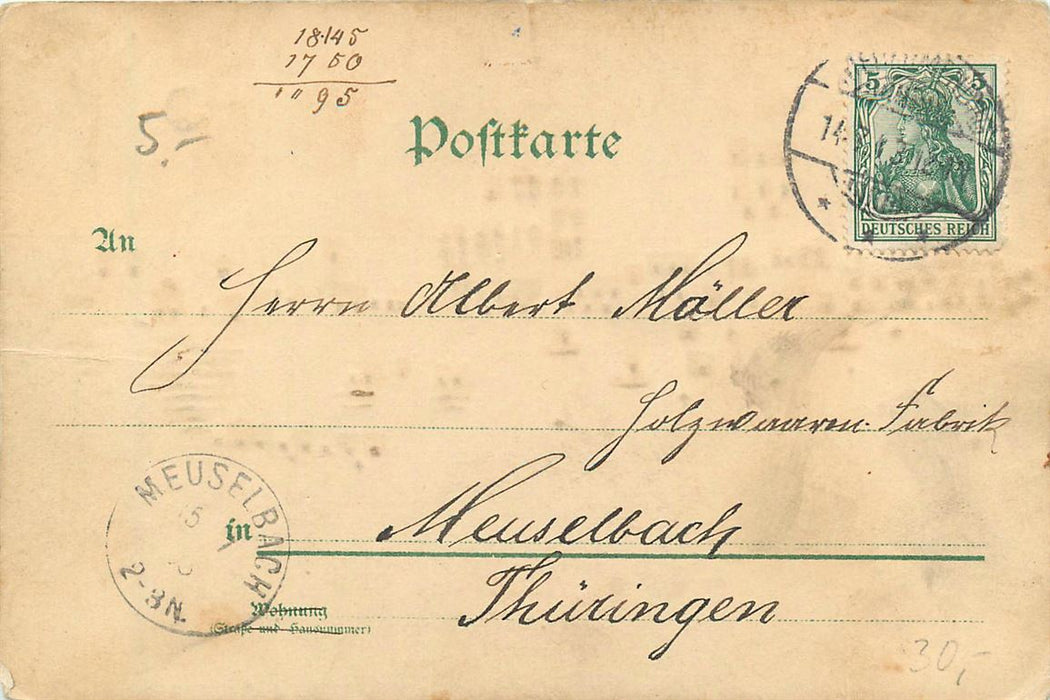 18145
1750
" " 95
5.-
Postkarte
5 5
DEUTSCHES REICH
An
Herrn Albert Möller
Holzwaaren-Fabrik
in Meuselbach
Thüringen
MEUSELBACH
15
2-3N.
Wohnung
(Straße und Hausnummer)
30,-